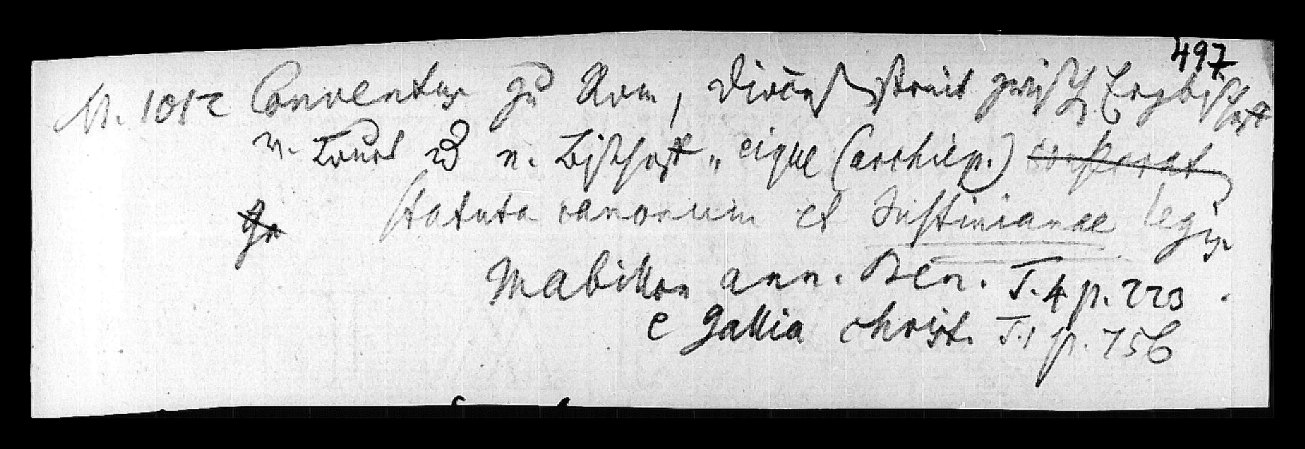 497
M. 1012 Conventus zu Rom, Diöces streit zwisch Erzbischof
v. Tours u. Bischof „ eique (archiep.)
statuta canonum et Justinianae legis
Mabillon ann. Ben. T. 4 p. 223.
e Gallia christ. T. 1 p. 756